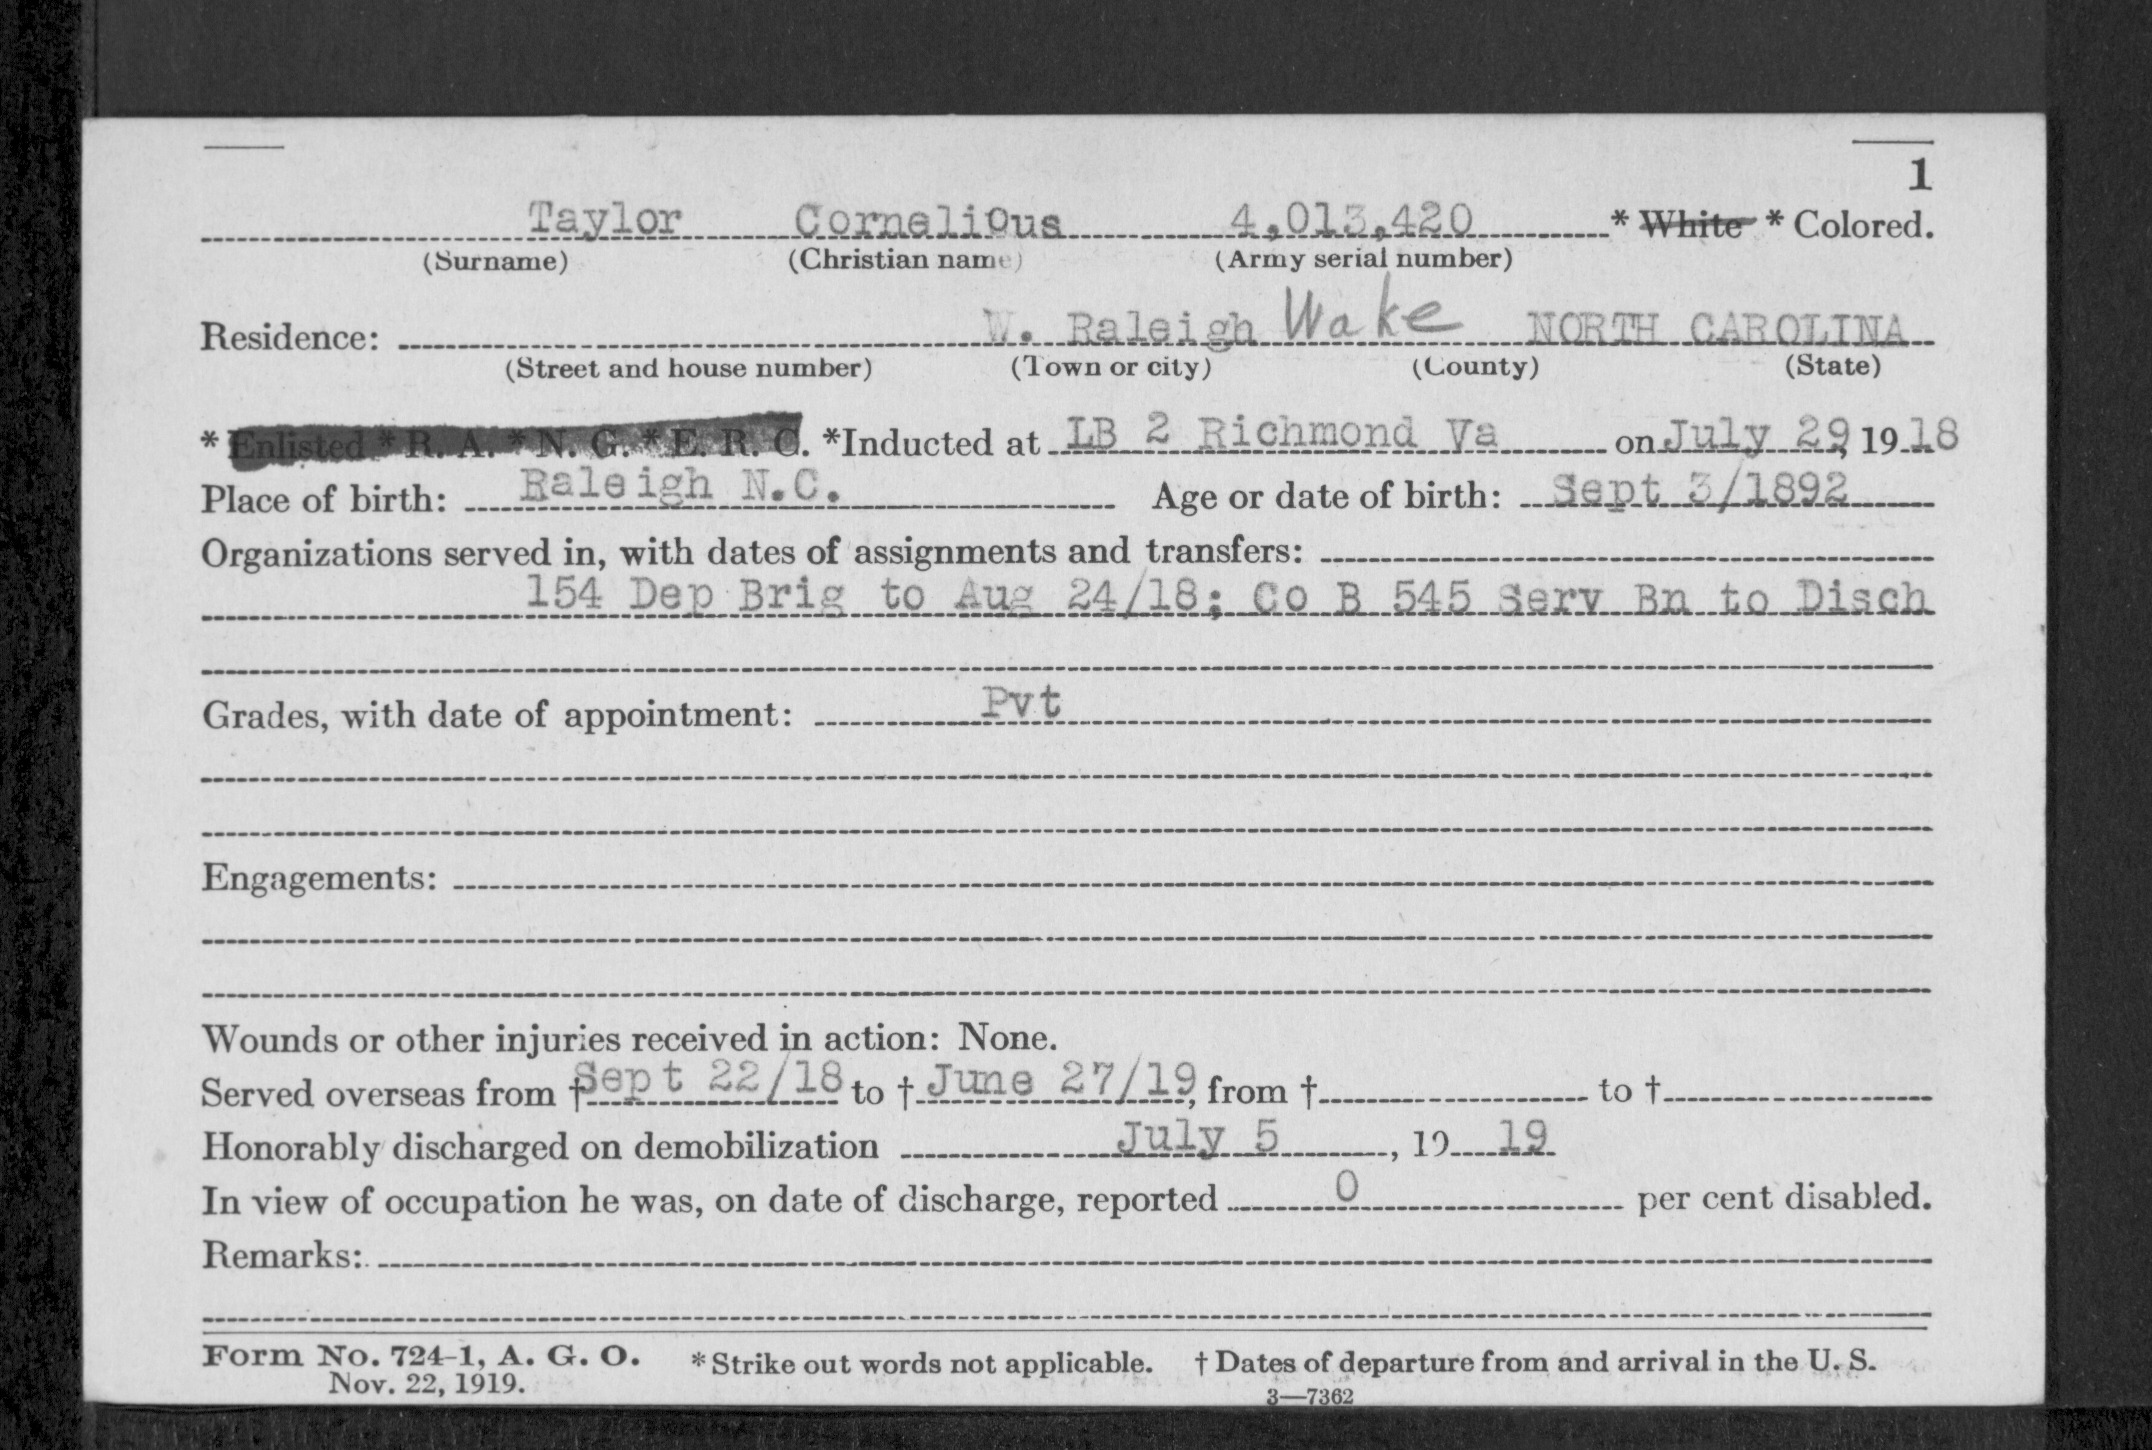 1
Taylor Cornelious 4,013,420 * White * Colored.
(Surname) (Christian name) (Army serial number)
Residence: W. Raleigh Wake NORTH CAROLINA
(Street and house number) (Town or city) (County) (State)
* Enlisted * R. A. * N. G. * E. R. C. *Inducted at LB 2 Richmond Va on July 29, 19 18
Place of birth: Raleigh N.C. Age or date of birth: Sept 3/1892
Organizations served in, with dates of assignments and transfers:
154 Dep Brig to Aug 24/18; Co B 545 Serv Bn to Disch
Grades, with date of appointment: Pvt
Engagements:
Wounds or other injuries received in action: None.
Served overseas from † Sept 22/18 to † June 27/19, from † to †
Honorably discharged on demobilization July 5, 19 19
In view of occupation he was, on date of discharge, reported 0 per cent disabled.
Remarks:
Form No. 724-1, A. G. O. * Strike out words not applicable. † Dates of departure from and arrival in the U. S.
Nov. 22, 1919. 3—7362